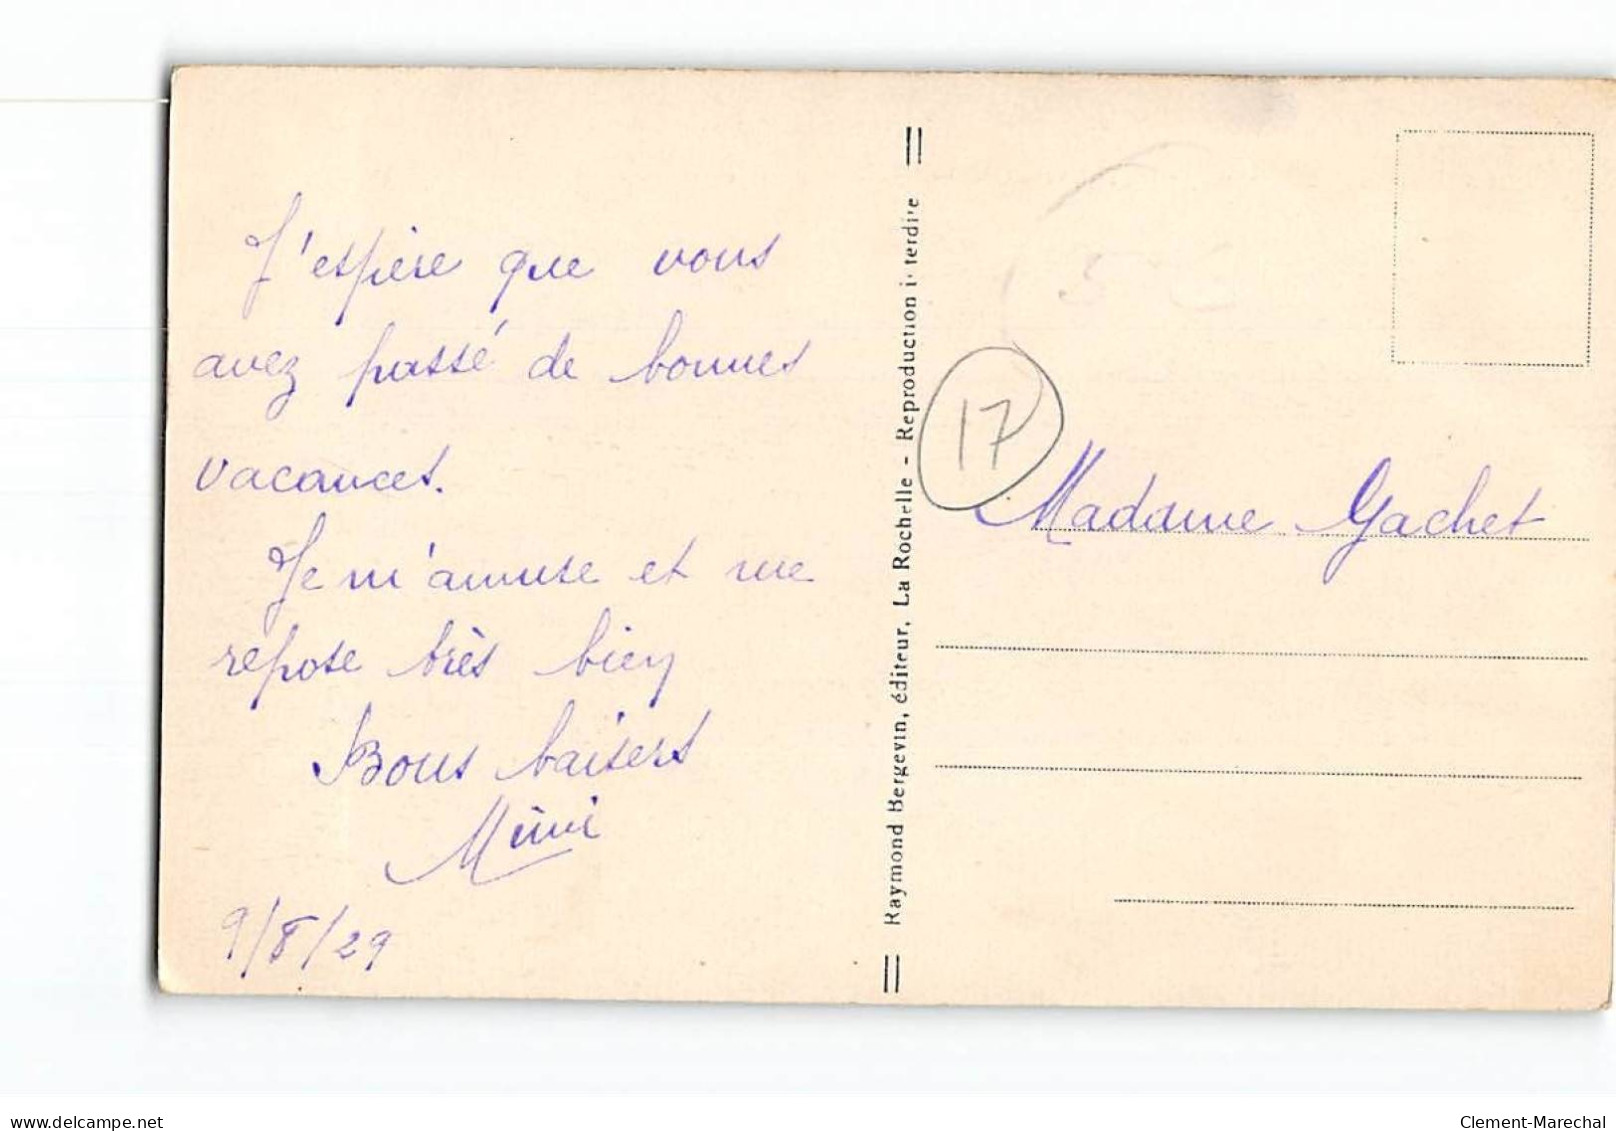 J'espère que vous
avez passé de bonnes
vacances.
Je m'amuse et me
repose très bien
Bons baisers
Mimi
9/8/29
Raymond Bergevin, éditeur, La Rochelle - Reproduction interdite
17
Madame Gachet
www.delcampe.net
Clement-Marechal